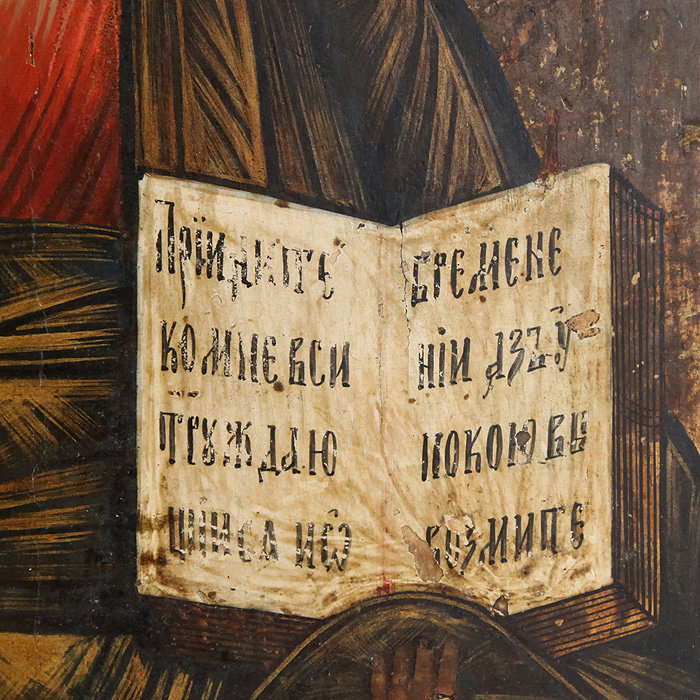 Прїидите
ко мне вси
труждаю
щїися и ѡ
бремене
нїи азъ у
покою вы
возмите